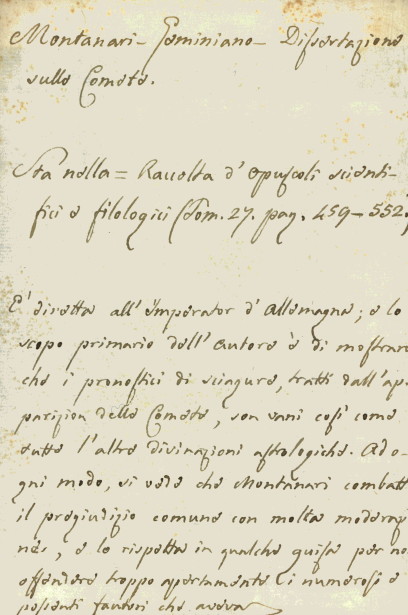 Montanari - Geminiano - Dissertazione
sulle Comete.
Sta nella = Raccolta d'opuscoli scienti-
fici e filologici (Tom. 27. pag. 459-552)
E' diretta all'Imperator d'Allemagna; e lo
scopo primario dell'autore è di mostrare
che i pronostici di sciagure, tratti dall'ap-
parizion delle Comete, son vani così come
tutte l'altre divinazioni astrologiche. Ad o-
gni modo, si vede che Montanari combatt
il pregiudizio comune con molta moderaz
ne, e lo rispetta in qualche guisa per no
offendere troppo apertamente i numerosi e
possenti fautori che aveva